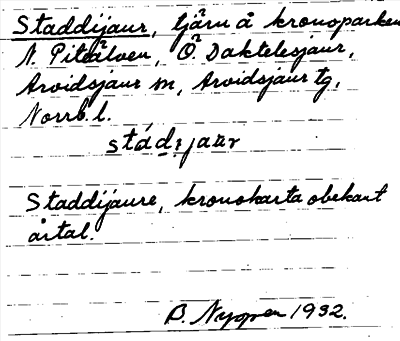 Staddijaur, tjärn å kronoparken
N. Piteälven, Ö. Daktelesjaur,
Arvidsjaur sn, Arvidsjaur tg,
Norrb. l.
stád:jaur
Staddijaure, kronokarta obekant
årtal.
B. Nygren 1932.